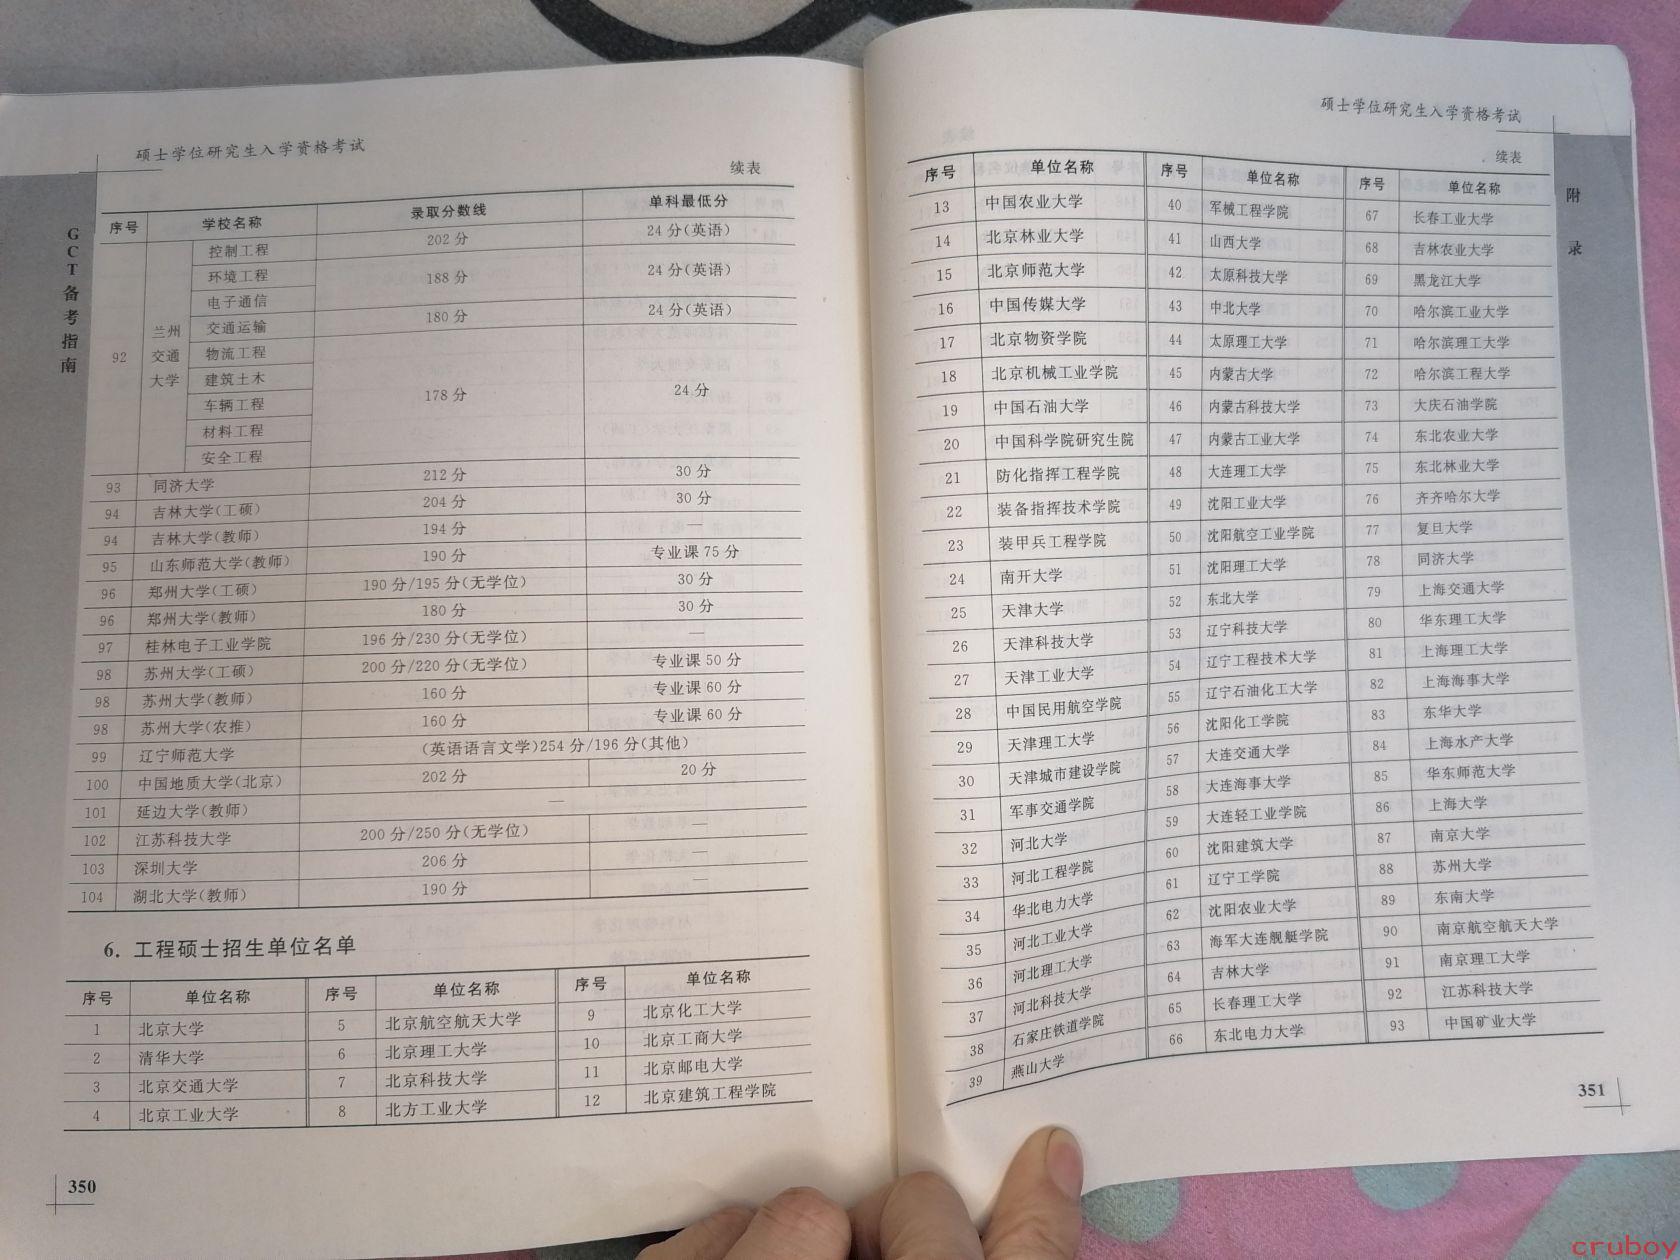 硕士学位研究生入学资格考试
续表
GCT备考指南
序号 学校名称 录取分数线 单科最低分
92 兰州交通大学 控制工程 202 分 24 分(英语)
环境工程 188 分 24 分(英语)
电子通信
交通运输 180 分 24 分(英语)
物流工程 178 分 24 分
建筑土木
车辆工程
材料工程
安全工程
93 同济大学 212 分 30 分
94 吉林大学(工硕) 204 分 30 分
94 吉林大学(教师) 194 分 —
95 山东师范大学(教师) 190 分 专业课 75 分
96 郑州大学(工硕) 190 分/195 分(无学位) 30 分
96 郑州大学(教师) 180 分 30 分
97 桂林电子工业学院 196 分/230 分(无学位) —
98 苏州大学(工硕) 200 分/220 分(无学位) 专业课 50 分
98 苏州大学(教师) 160 分 专业课 60 分
98 苏州大学(农推) 160 分 专业课 60 分
99 辽宁师范大学 (英语语言文学)254 分/196 分(其他)
100 中国地质大学(北京) 202 分 20 分
101 延边大学(教师) —
102 江苏科技大学 200 分/250 分(无学位) —
103 深圳大学 206 分 —
104 湖北大学(教师) 190 分 —
6. 工程硕士招生单位名单
序号 单位名称 序号 单位名称 序号 单位名称
1 北京大学 5 北京航空航天大学 9 北京化工大学
2 清华大学 6 北京理工大学 10 北京工商大学
3 北京交通大学 7 北京科技大学 11 北京邮电大学
4 北京工业大学 8 北方工业大学 12 北京建筑工程学院
350
硕士学位研究生入学资格考试
续表
附录
序号 单位名称 序号 单位名称 序号 单位名称
13 中国农业大学 40 军械工程学院 67 长春工业大学
14 北京林业大学 41 山西大学 68 吉林农业大学
15 北京师范大学 42 太原科技大学 69 黑龙江大学
16 中国传媒大学 43 中北大学 70 哈尔滨工业大学
17 北京物资学院 44 太原理工大学 71 哈尔滨理工大学
18 北京机械工业学院 45 内蒙古大学 72 哈尔滨工程大学
19 中国石油大学 46 内蒙古科技大学 73 大庆石油学院
20 中国科学院研究生院 47 内蒙古工业大学 74 东北农业大学
21 防化指挥工程学院 48 大连理工大学 75 东北林业大学
22 装备指挥技术学院 49 沈阳工业大学 76 齐齐哈尔大学
23 装甲兵工程学院 50 沈阳航空工业学院 77 复旦大学
24 南开大学 51 沈阳理工大学 78 同济大学
25 天津大学 52 东北大学 79 上海交通大学
26 天津科技大学 53 辽宁科技大学 80 华东理工大学
27 天津工业大学 54 辽宁工程技术大学 81 上海理工大学
28 中国民用航空学院 55 辽宁石油化工大学 82 上海海事大学
29 天津理工大学 56 沈阳化工学院 83 东华大学
30 天津城市建设学院 57 大连交通大学 84 上海水产大学
31 军事交通学院 58 大连海事大学 85 华东师范大学
32 河北大学 59 大连轻工业学院 86 上海大学
33 河北工程学院 60 沈阳建筑大学 87 南京大学
34 华北电力大学 61 辽宁工学院 88 苏州大学
35 河北工业大学 62 沈阳农业大学 89 东南大学
36 河北理工大学 63 海军大连舰艇学院 90 南京航空航天大学
37 河北科技大学 64 吉林大学 91 南京理工大学
38 石家庄铁道学院 65 长春理工大学 92 江苏科技大学
39 燕山大学 66 东北电力大学 93 中国矿业大学
351
cruboy